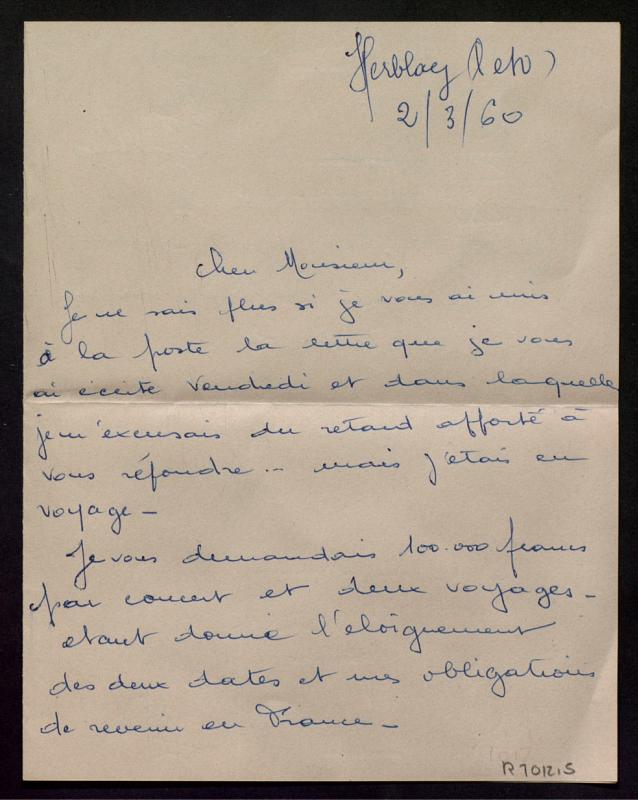 Herblay (s et o)
2/3/60
cher Monsieur,
Je ne sais plus si je vous ai mis
à la poste la lettre que je vous
ai écrite Vendredi et dans laquelle
je m'excusais du retard apporté à
vous répondre -- mais j'étais en
voyage -
Je vous demandais 100.000 francs
par concert et deux voyages -
etant donné l'eloignement
des deux dates et mes obligations
de revenir en France -
R 7012.5